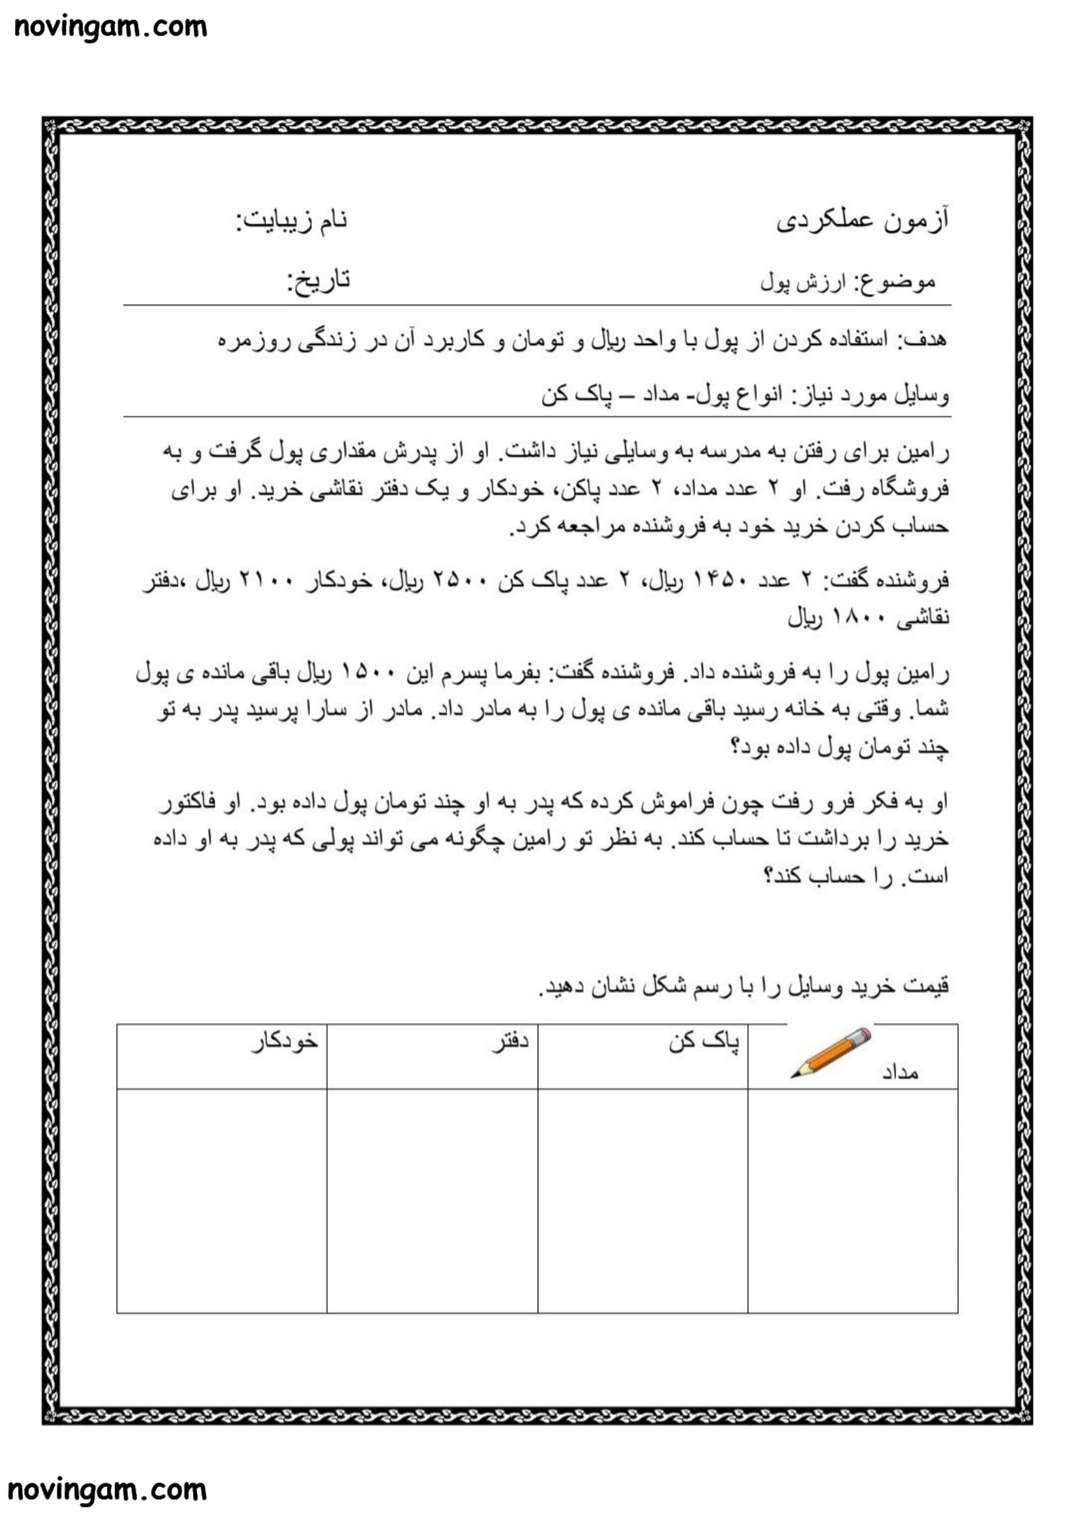 novingam.com
آزمون عملکردی نام زیبایت:
موضوع: ارزش پول تاریخ:
هدف: استفاده کردن از پول با واحد ریال و تومان و کاربرد آن در زندگی روزمره
وسایل مورد نیاز: انواع پول- مداد – پاک کن
رامین برای رفتن به مدرسه به وسایلی نیاز داشت. او از پدرش مقداری پول گرفت و به
فروشگاه رفت. او ۲ عدد مداد، ۲ عدد پاکن، خودکار و یک دفتر نقاشی خرید. او برای
حساب کردن خرید خود به فروشنده مراجعه کرد.
فروشنده گفت: ۲ عدد ۱۴۵۰ ریال، ۲ عدد پاک کن ۲۵۰۰ ریال، خودکار ۲۱۰۰ ریال ،دفتر
نقاشی ۱۸۰۰ ریال
رامین پول را به فروشنده داد. فروشنده گفت: بفرما پسرم این ۱۵۰۰ ریال باقی مانده ی پول
شما. وقتی به خانه رسید باقی مانده ی پول را به مادر داد. مادر از سارا پرسید پدر به تو
چند تومان پول داده بود؟
او به فکر فرو رفت چون فراموش کرده که پدر به او چند تومان پول داده بود. او فاکتور
خرید را برداشت تا حساب کند. به نظر تو رامین چگونه می تواند پولی که پدر به او داده
است. را حساب کند؟
قیمت خرید وسایل را با رسم شکل نشان دهید.
مداد پاک کن دفتر خودکار
novingam.com